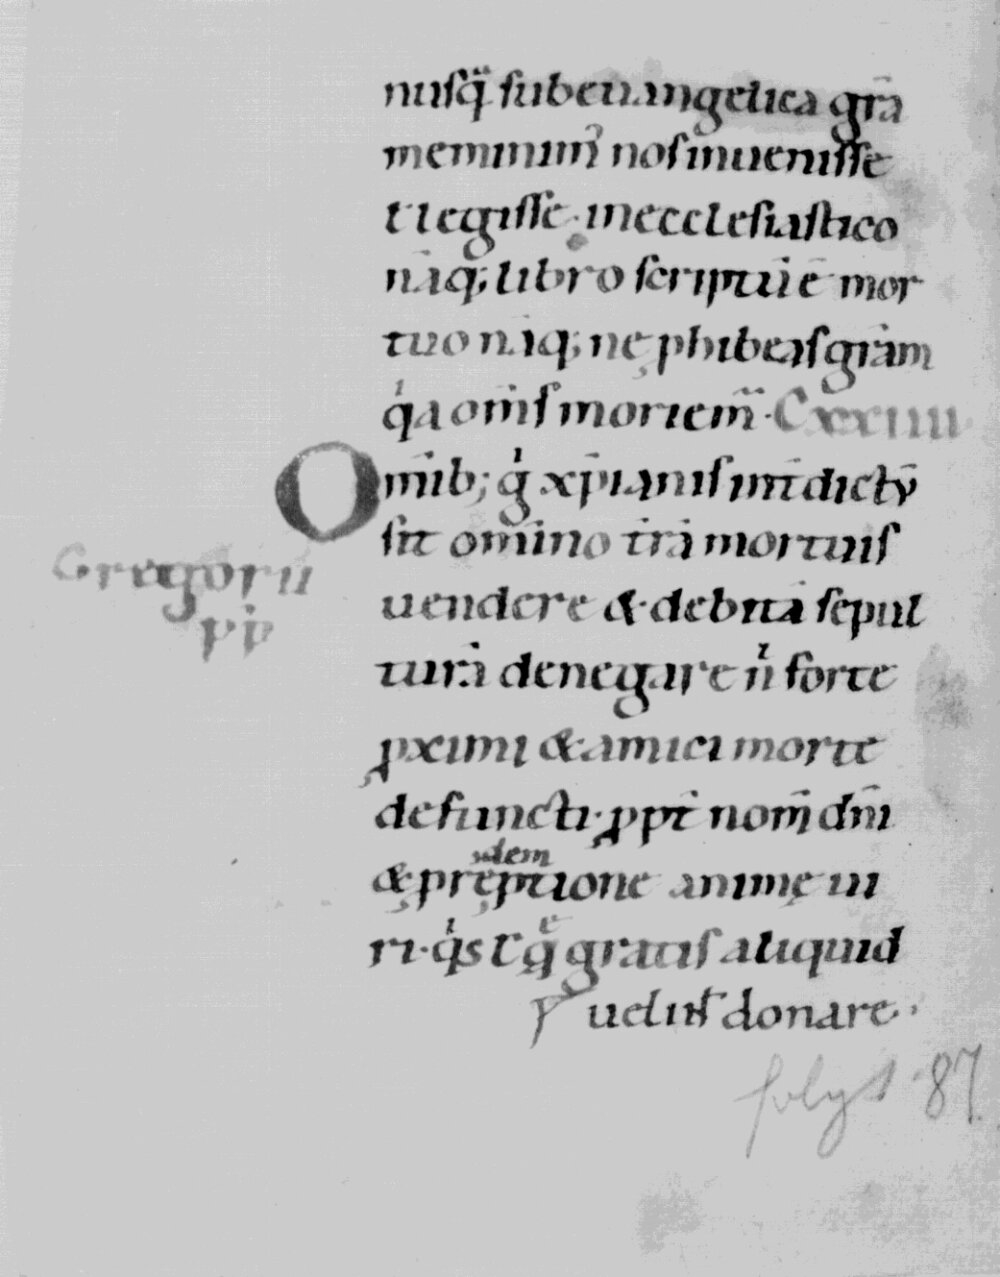 nusq̈ sub euangelica gr̄a
meminim᾽ nos inuenisse
ł legisse· in ecclesiastico
nāq; libro scriptū ē mor
tuo nāq; ne ꝓhibeas gr̄am
q̓a om̄s moriem̄· Cxxiiii
Om̄ib; g̓ xp̄ianis int̄dictū
sit om̄ino t̄rā mortuis
Gregorii
pp̄
uendere & debitā sepul
turā denegare n̓ forte
ꝓximi & amici morte
defuncti· ꝓpt̄ nom̄ dn̄i
dem
& p redēptione animę ui
ri· q̓s ł qͤ gratis aliquid
uelint donare·
folyt 87